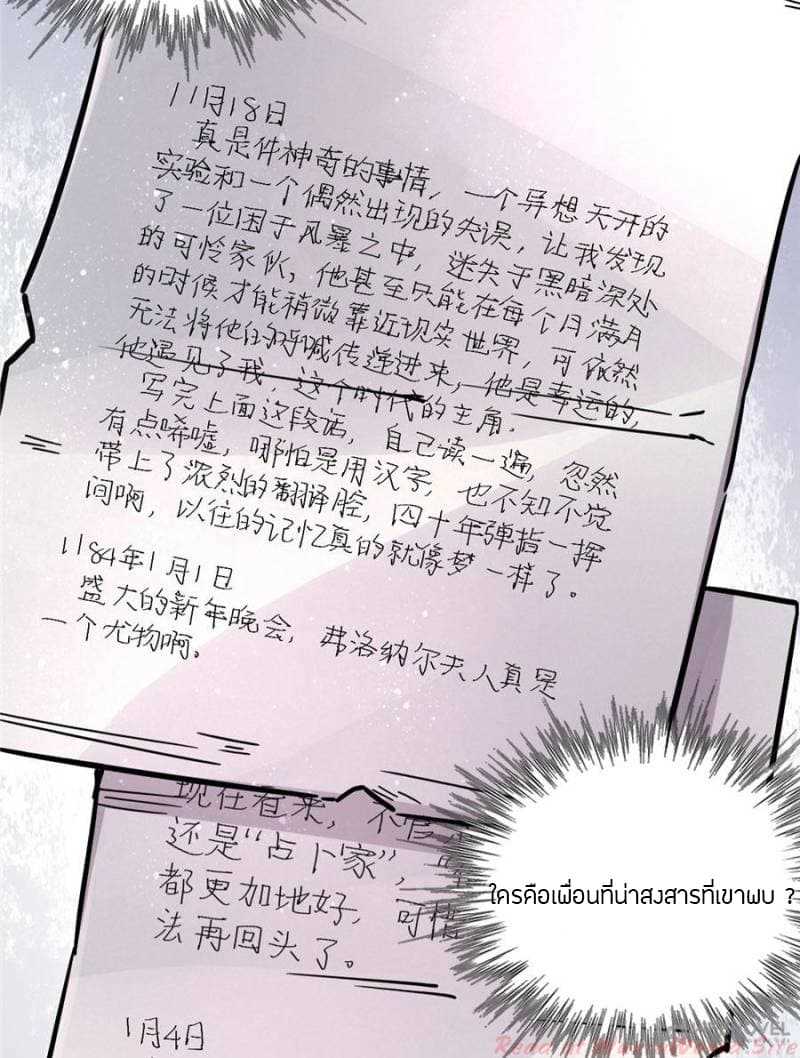 11月18日
真是件神奇的事情，一个异想天开的
实验和一个偶然出现的失误，让我发现
了一位困于风暴之中，迷失于黑暗深处
的可怜家伙，他甚至只能在每个月满月
的时候才能稍微靠近现实世界，可依然
无法将他的呼喊传递进来，他是幸运的，
他遇见了我，这个时代的主角。
写完上面这段话，自己读一遍，忽然
有点唏嘘，哪怕是用汉字，也不知不觉
带上了浓烈的翻译腔，四十年弹指一挥
间啊，以往的记忆真的就像梦一样了。
1184年1月1日
盛大的新年晚会，弗洛纳尔夫人真是
一个尤物啊。
现在看来，不管
还是“占卜家”，
都更加地好，可惜
法再回头了。
ใครคือเพื่อนที่น่าสงสารที่เขาพบ ?
1月4日
Read at